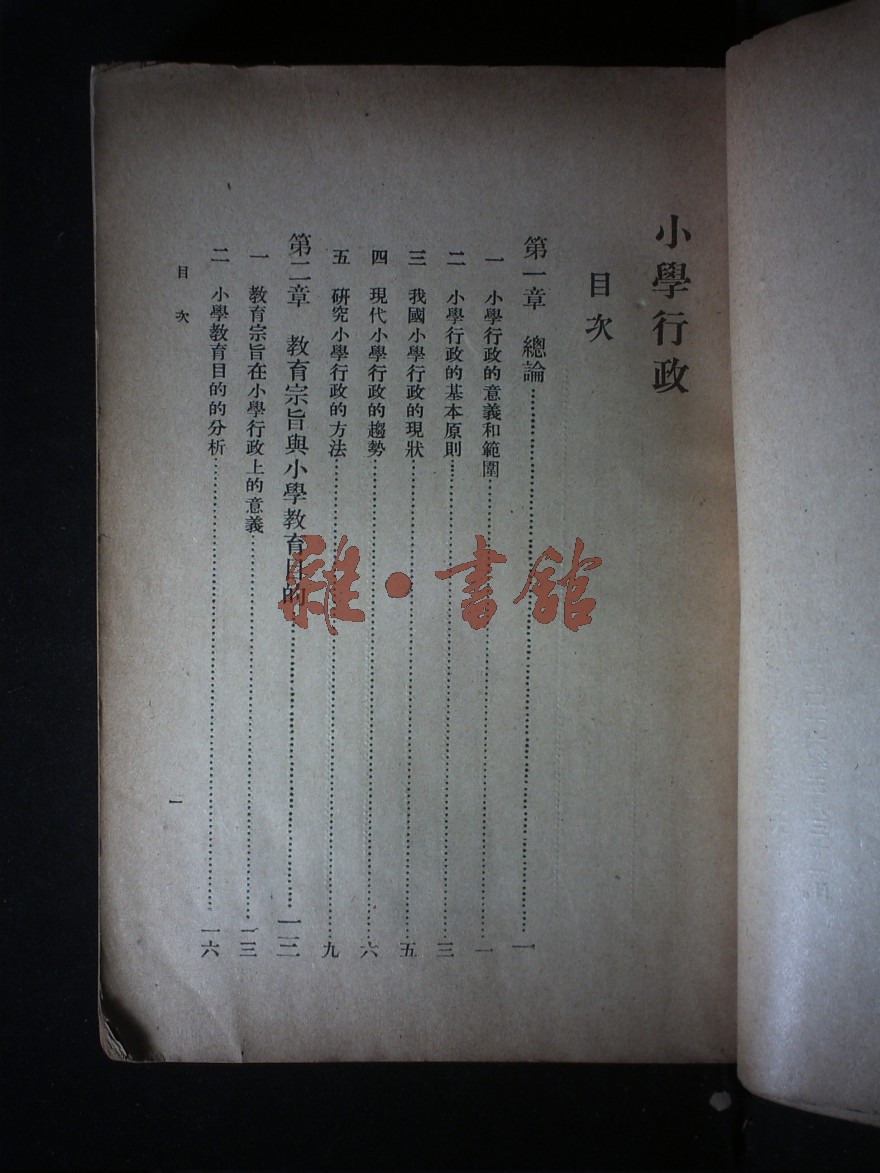 小學行政
目次
第一章　總論……一
一　小學行政的意義和範圍……一
二　小學行政的基本原則……三
三　我國小學行政的現狀……五
四　現代小學行政的趨勢……六
五　研究小學行政的方法……九
第二章　教育宗旨與小學教育目的……一二
一　教育宗旨在小學行政上的意義……一三
二　小學教育目的的分析……一六
目次
一
雜·書館